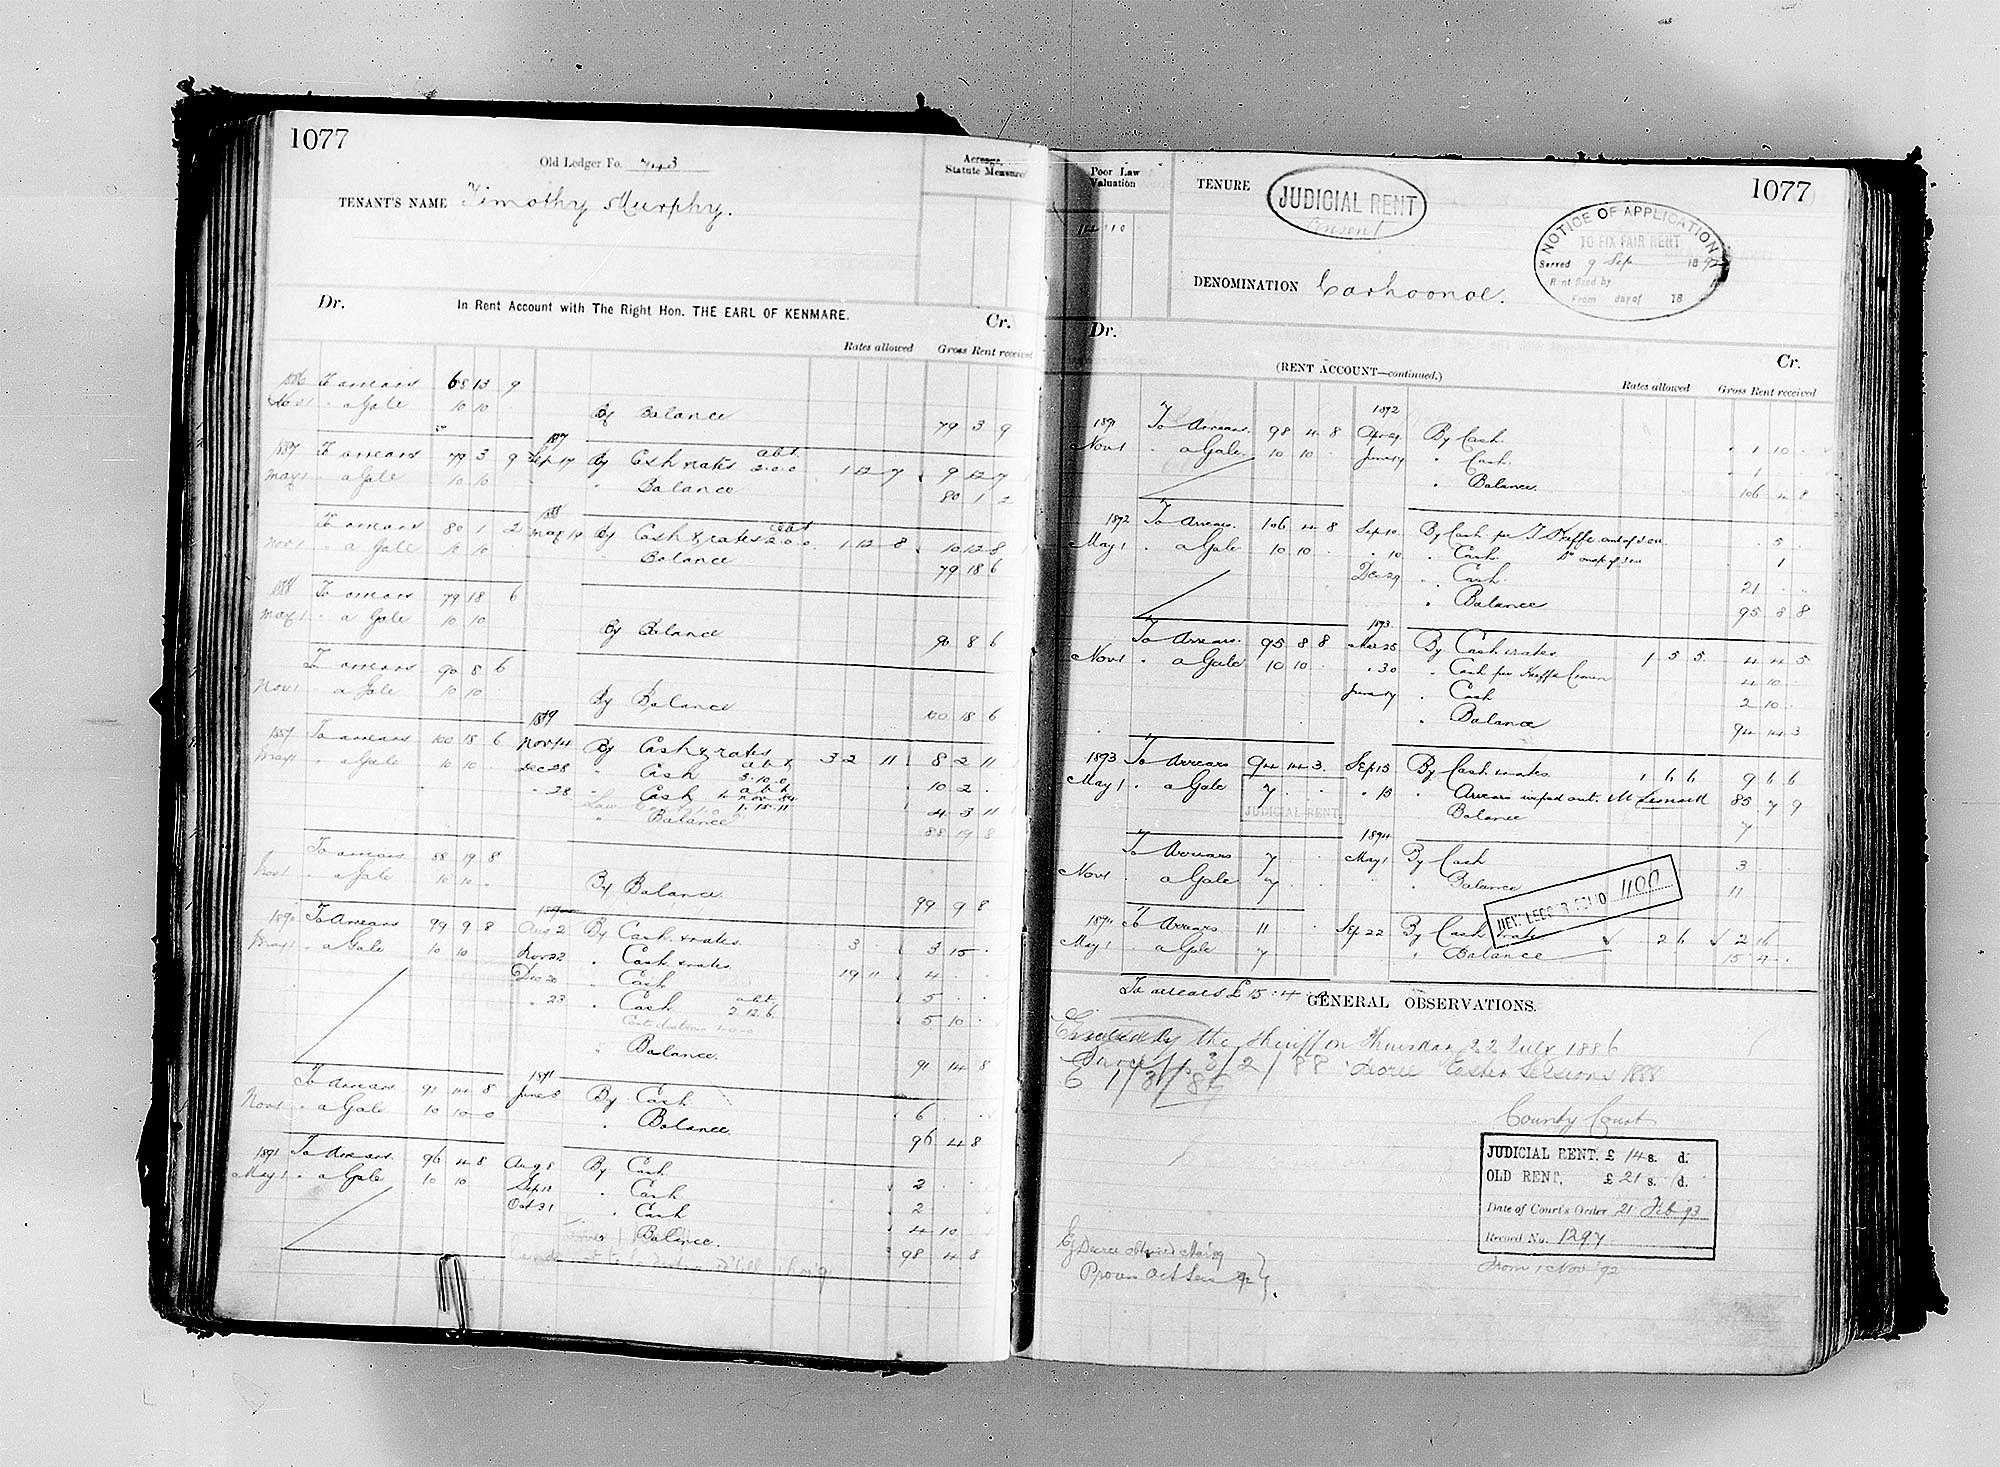 1077
Old Ledger Fo. 743
Acreage,
Statute Measure
TENANT'S NAME Timothy Murphy.
Dr. In Rent Account with The Right Hon. THE EARL OF KENMARE. Cr.
Rates allowed Gross Rent received
1886 To arrears 68 13 9
Nov 1 " a Gale 10 10 By Balance 79 3 9
1887 To arrears 79 3 9 1887 Sep 17 By Cash & rates abt 2.0.0 1 12 7 9 12 7
May 1 " a Gale 10 10 " Balance 80 1 2
To arrears 80 1 2 1888 May 19 By Cash & rates abt 2.0.0 1 12 8 10 12 8
Nov 1 " a Gale 10 10 Balance 79 18 6
1888 To arrears 79 18 6
May 1 " a Gale 10 10 By Balance 90 8 6
To arrears 90 8 6
Nov 1 " a Gale 10 10 By Balance 100 18 6
1889 To arrears 100 18 6 1889 Nov 14 By Cash & rates 3 2 11 8 2 11
May 1 " a Gale 10 10 Dec 28 " Cash abt 3.10.0 10 2
" 28 " Cash abt 1.15.11 4 3 11
" Balance 88 19 8
To arrears 88 19 8
Nov 1 " a Gale 10 10 By Balance 99 9 8
1890 To Arrears 99 9 8 1890 Aug 2 By Cash & rates 3 3 15
May 1 " a Gale 10 10 Nov 22 " Cash & rates 19 11 4
Dec 20 " Cash 5
" 23 " Cash abt 2.12.6 5 10
" Balance 91 14 8
To Arrears 91 14 8 1891 June 8 By Cash 6
Nov 1 " a Gale 10 10 0 " Balance 96 4 8
1891 To Arrears 96 4 8 Aug 8 By Cash 2
May 1 " a Gale 10 10 Sep 12 " Cash 2
Oct 31 " Cash 4 10
" Balance 98 4 8
Poor Law
Valuation
14 10
TENURE JUDICIAL RENT
Consent
1077
NOTICE OF APPLICATION
TO FIX FAIR RENT
Served 9 Sep 1892
Rent fixed by
From day of 18
DENOMINATION Carhoonoe.
Dr. (RENT ACCOUNT—continued.) Cr.
Rates allowed Gross Rent received
1891 To Arrears. 98 4 8 1892 Apr 29 By Cash 1 10
Nov 1 " a Gale 10 10 June 17 " Cash 1
" Balance 106 4 8
1892 To Arrears. 106 4 8 Sep 10 By Cash per J Keeffe 5
May 1 " a Gale 10 10 " 10 " Cash Do 1
Dec 29 " Cash 21
" Balance 95 8 8
To Arrears. 95 8 8 1893 Mar 25 By Cash & rates 1 5 5 4 4 5
Nov 1 " a Gale 10 10 " 30 " Cash per Keeffe 4 10
June 17 " Cash 2 10
" Balance 94 14 3
1893 To Arrears 94 14 3 Sep 15 By Cash & rates 1 6 6 9 6 6
May 1 " a Gale 7 " 15 " Arrears wiped out. 85 7 9
JUDICIAL RENT Balance 7
To Arrears 7 1894 May 1 By Cash 3
Nov 1 a Gale 7 " Balance 11
NEW LEDGER FOLIO 1100
1894 To Arrears 11 Sep 22 By Cash rate 2 6 2 16
May 1 a Gale 7 " Balance 15 4
To arrears £15.4
GENERAL OBSERVATIONS.
by the Sheriff on Thursday 22 July 1886
3/2/88 decree Easter Sessions 1888
E 1/3/89
County Court
JUDICIAL RENT, £ 14 s. d.
OLD RENT, £ 21 s. d.
Date of Court's Order 21 Feb 93
Record No. 1297
From 1 Nov '92
Ej Decree obtained